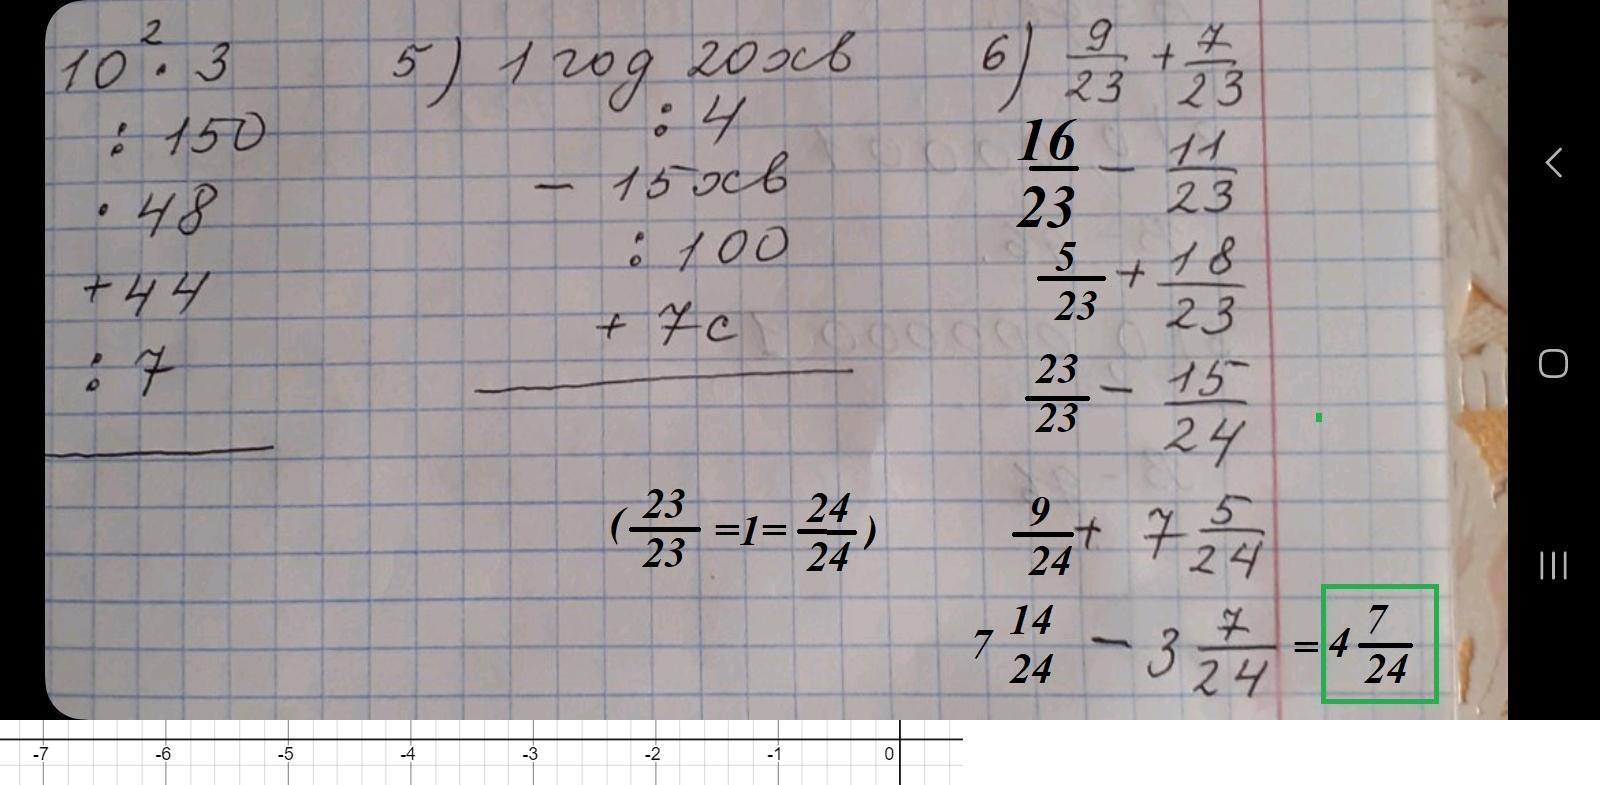 10² · 3
: 150
· 48
+ 44
: 7
5) 1 год 20 хв
: 4
− 15 хв
: 100
+ 7 с
6) 9/23 + 7/23
16/23 − 11/23
5/23 + 18/23
23/23 − 15/24
(23/23 =1= 24/24)
9/24 + 7 5/24
7 14/24 − 3 7/24 = 4 7/24
-7 -6 -5 -4 -3 -2 -1 0